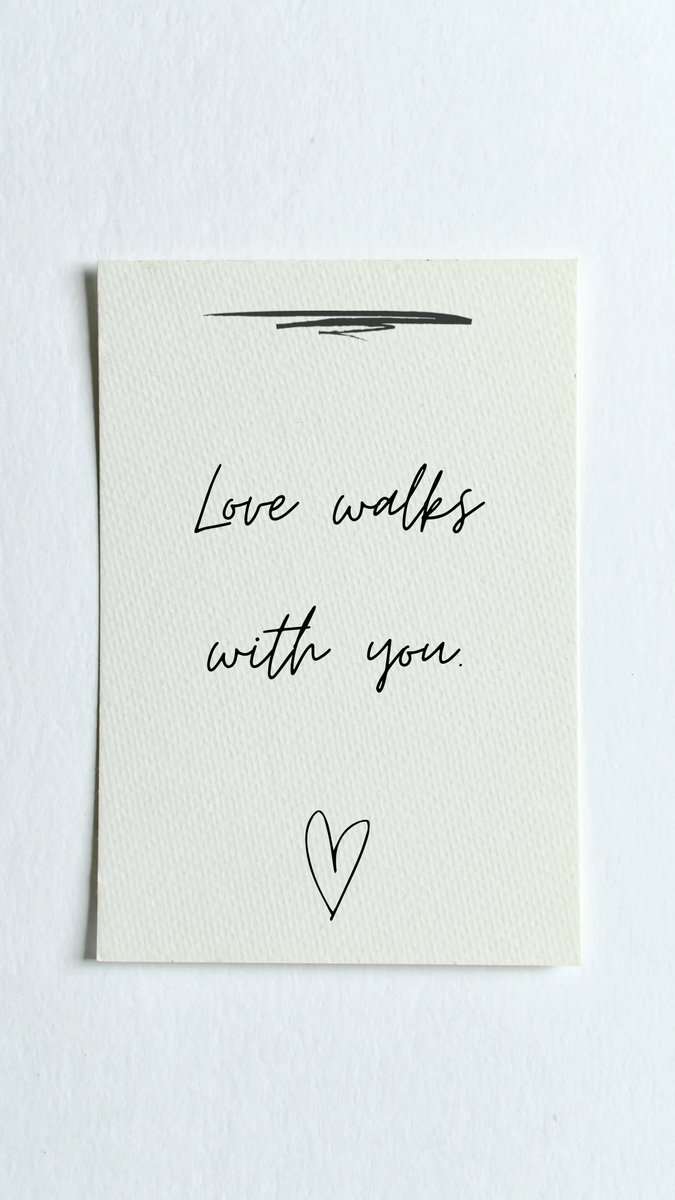 Love walks
with you.